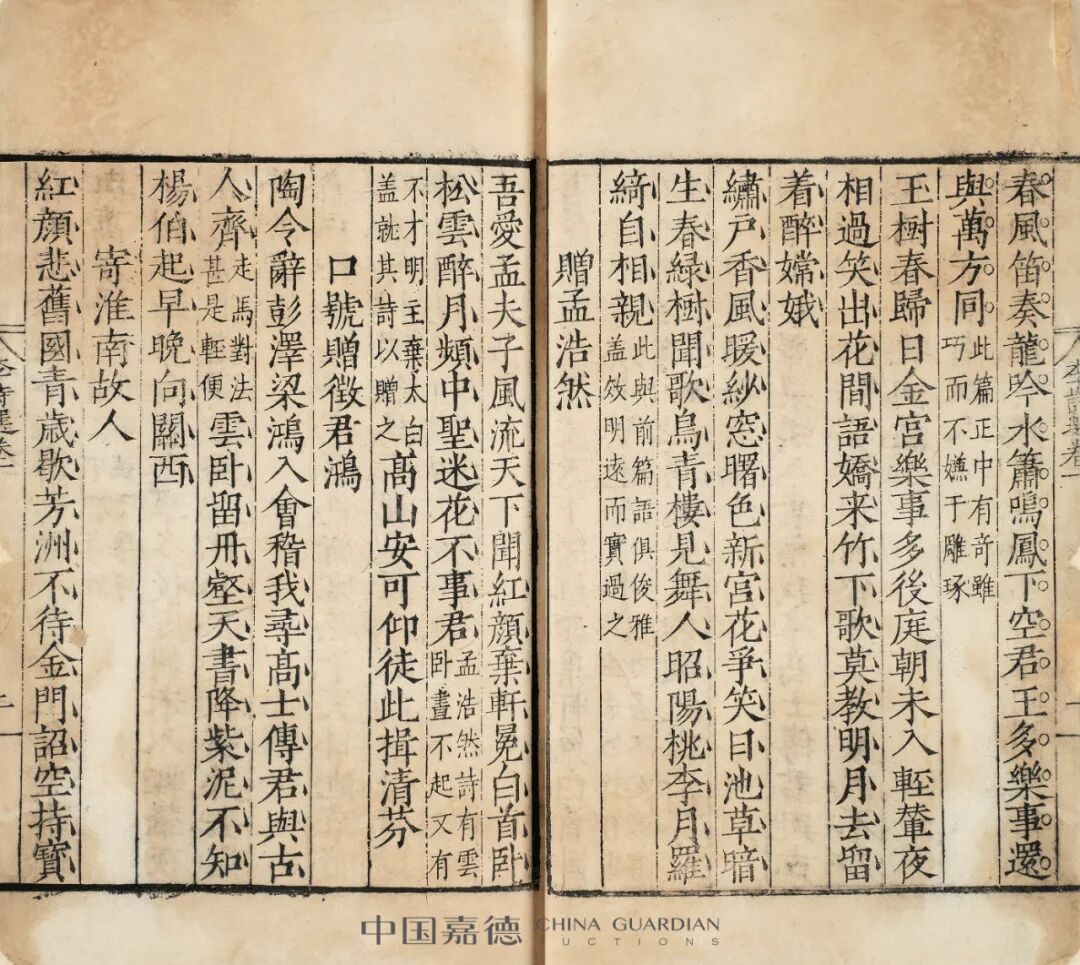 李詩選卷一
春風笛奏龍吟水簫鳴鳳下空君王多樂事還
與萬方同此篇正中有奇雖巧而不嫌于雕琢
玉樹春歸日金宮樂事多後庭朝未入輕輦夜
相過笑出花間語嬌来竹下歌莫教明月去留
着醉嫦娥
繡戶香風暖紗窓曙色新宮花爭笑日池草暗
生春緑樹聞歌鳥青樓見舞人昭陽桃李月羅
綺自相親此與前篇語俱俊雅盖效明遠而實過之
贈孟浩然
吾愛孟夫子風流天下聞紅顔棄軒冕白首卧
松雲醉月頻中聖迷花不事君孟浩然詩有雲卧晝不起又有
不才明主棄太白盖就其詩以贈之高山安可仰徒此揖清芬
口號贈徵君鴻
陶令辭彭澤梁鴻入會稽我尋高士傳君與古
人齊走馬對法甚是輕便雲卧留丹壑天書降紫泥不知
楊伯起早晚向關西
寄淮南故人
紅顔悲舊國青歲歇芳洲不待金門詔空持寶
中国嘉德 CHINA GUARDIAN
AUCTIONS